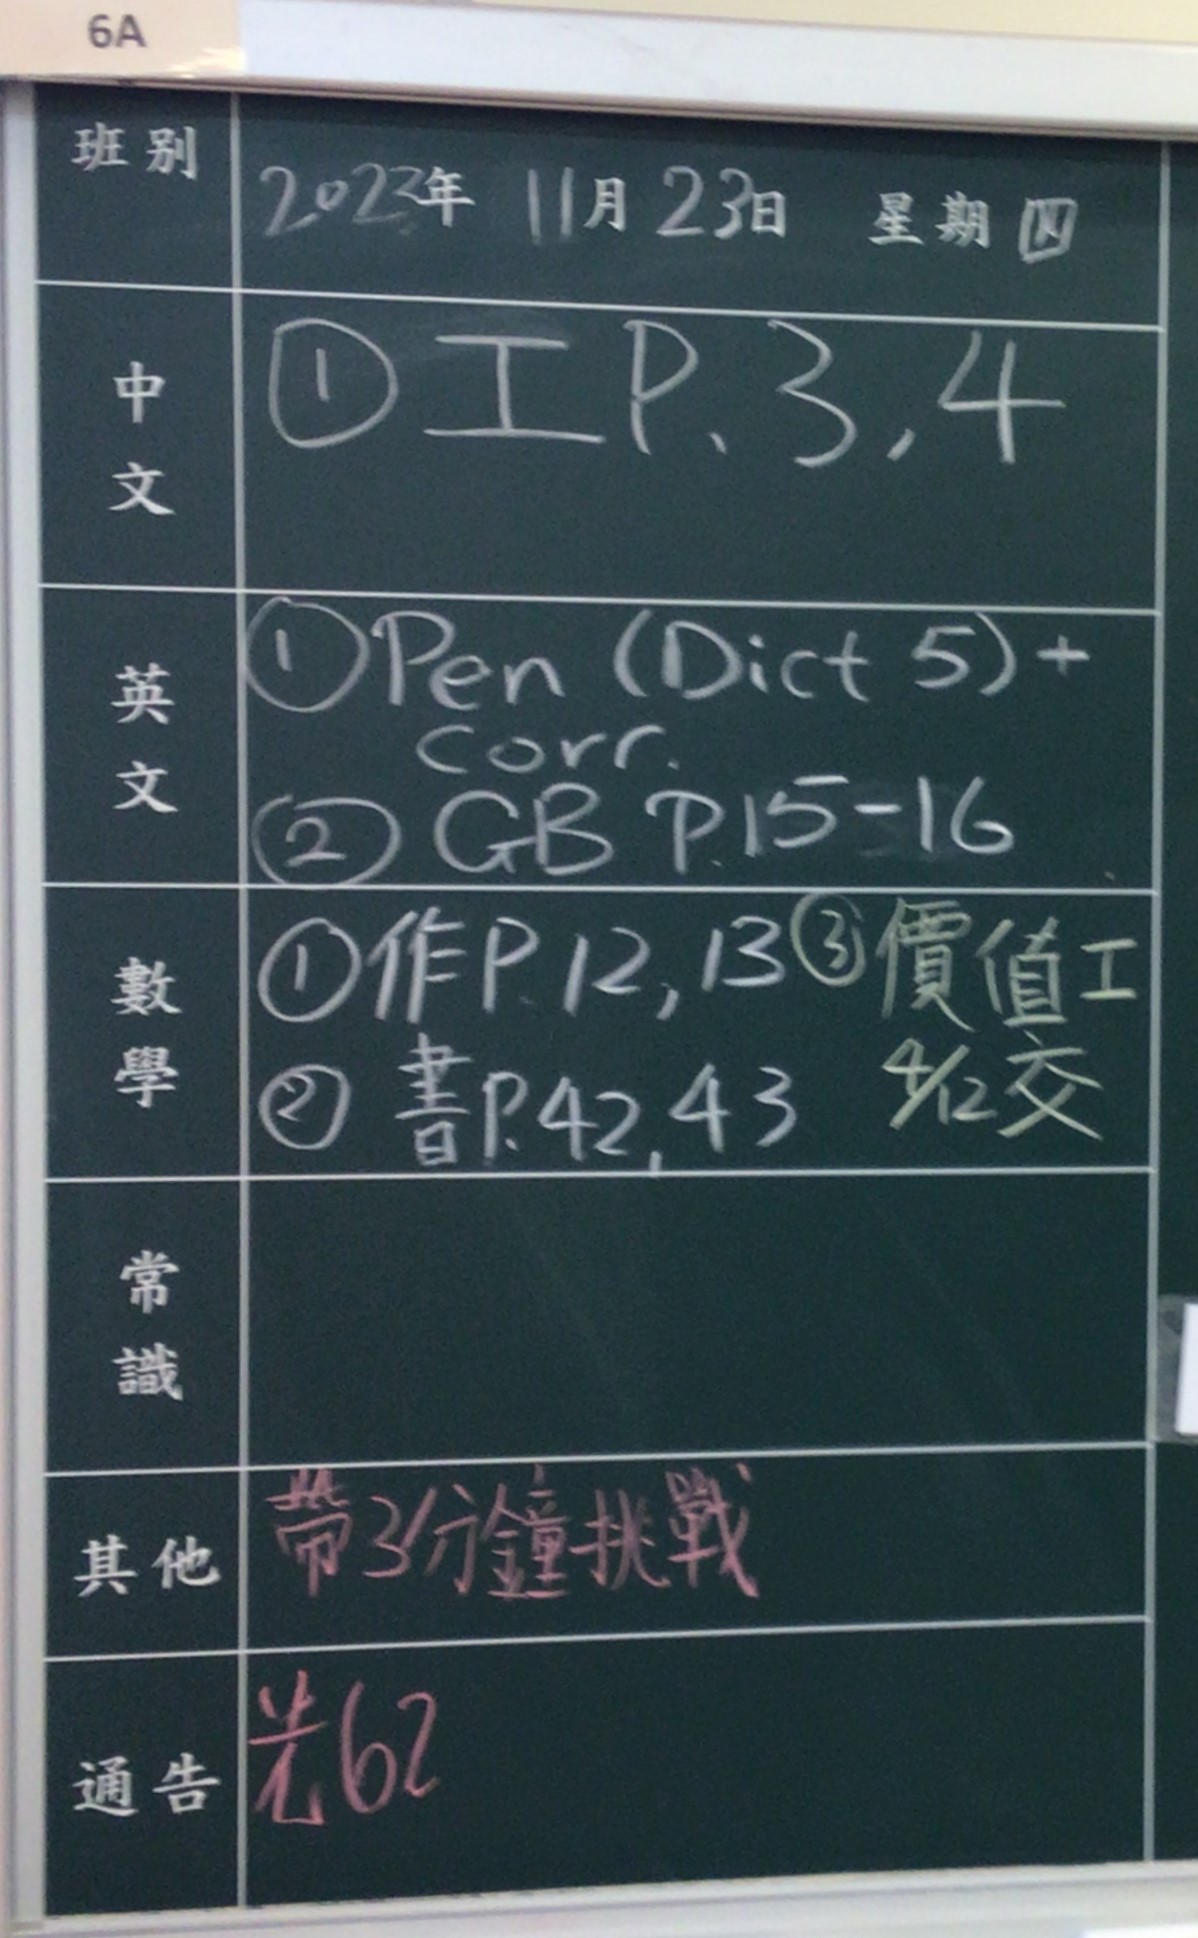 6A
班別 2023年 11月23日 星期四
中文
① 工 P.3,4
英文
① Pen (Dict 5) +
corr.
② GB P.15-16
數學
① 作 P.12,13
② 書 P.42,43
③ 價值工
4/12交
常識
其他
帶3分鐘挑戰
通告
光62